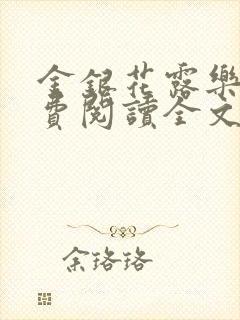 金銀花露樂
費閱讀全文
余珞珞